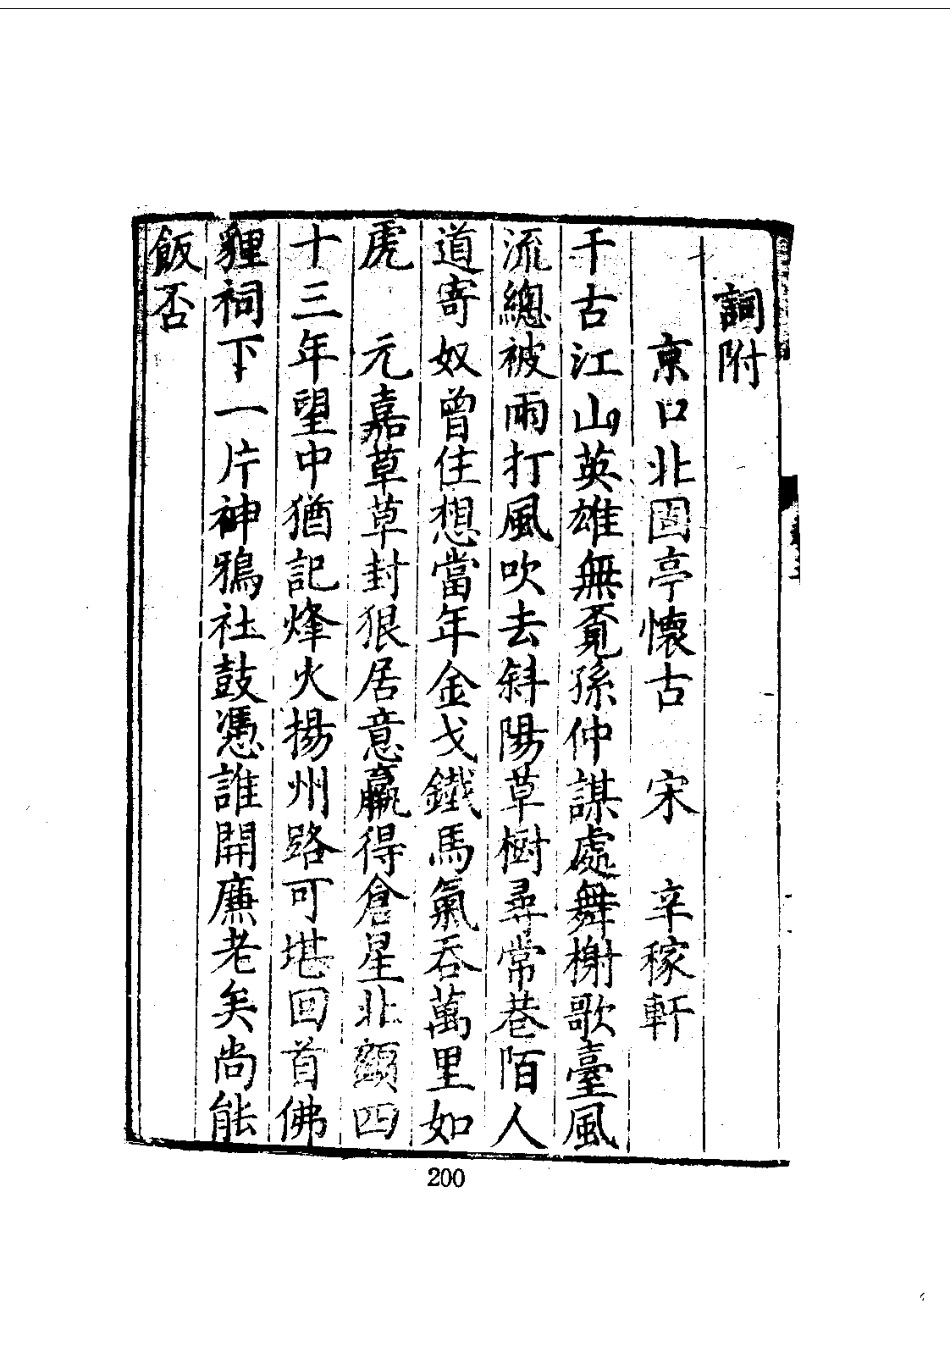 詞附
京口北固亭懷古　宋　辛稼軒
千古江山英雄無覔孫仲謀處舞榭歌臺風
流總被雨打風吹去斜陽草樹尋常巷陌人
道寄奴曾住想當年金戈鐵馬氣吞萬里如
虎　元嘉草草封狼居意贏得倉星北顧四
十三年望中猶記烽火揚州路可堪回首佛
貍祠下一片神鴉社鼓憑誰開廉老矣尚能
飯否
200